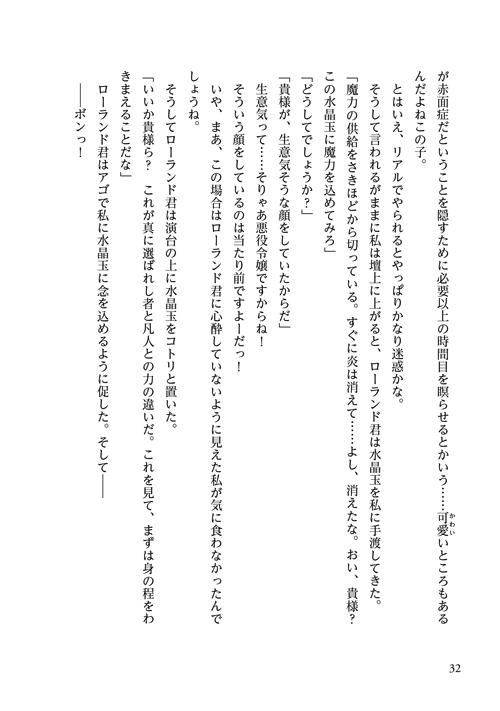 が赤面症だということを隠すために必要以上の時間目を瞑らせるとかいう……可愛いところもある
かわい
んだよねこの子。
とはいえ、リアルでやられるとやっぱりかなり迷惑かな。
そうして言われるがままに私は壇上に上がると、ローランド君は水晶玉を私に手渡してきた。
「魔力の供給をさきほどから切っている。すぐに炎は消えて……よし、消えたな。おい、貴様?
この水晶玉に魔力を込めてみろ」
「どうしてでしょうか?」
「貴様が、生意気そうな顔をしていたからだ」
生意気って……そりゃあ悪役令嬢ですからね!
そういう顔をしているのは当たり前ですよーだっ!
いや、まあ、この場合はローランド君に心酔していないように見えた私が気に食わなかったんで
しょうね。
そうしてローランド君は演台の上に水晶玉をコトリと置いた。
「いいか貴様ら? これが真に選ばれし者と凡人との力の違いだ。これを見て、まずは身の程をわ
きまえることだな」
ローランド君はアゴで私に水晶玉に念を込めるように促した。そして――
――ボンっ!
32